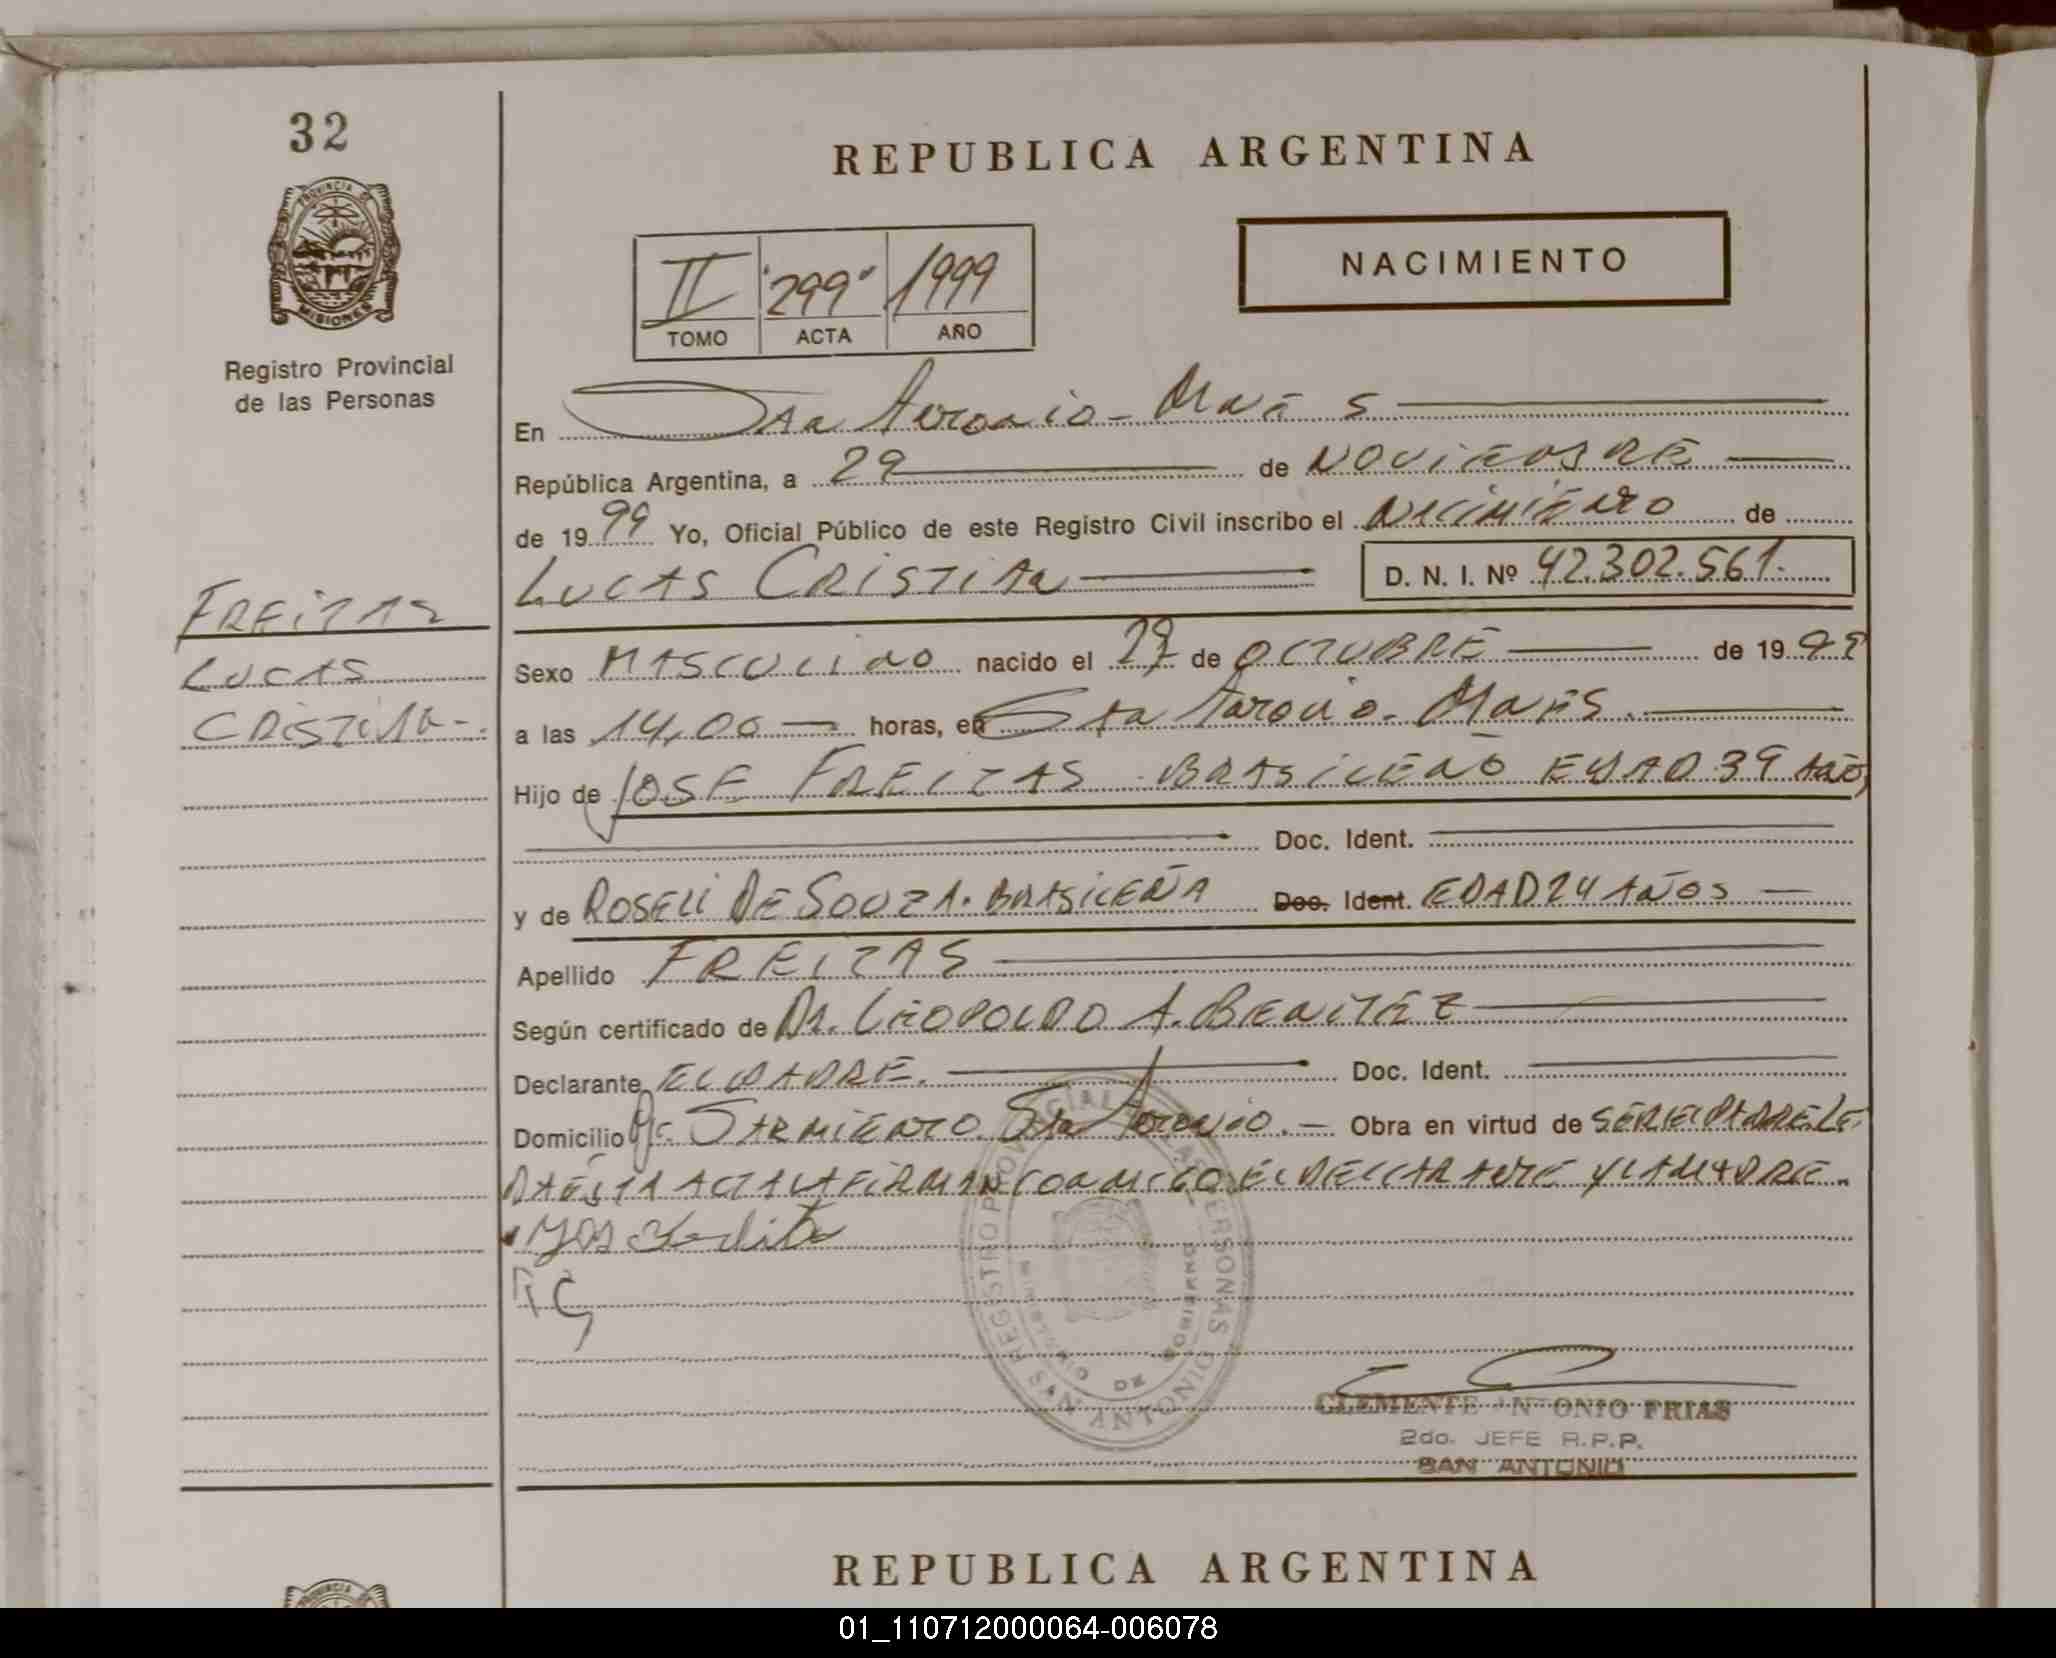 32
PROVINCIA DE
MISIONES
Registro Provincial
de las Personas
REPUBLICA ARGENTINA
NACIMIENTO
II "299" 1999
TOMO ACTA AÑO
En San Antonio - Mnes
República Argentina, a 29 de NOVIEMBRE
de 1999 Yo, Oficial Público de este Registro Civil inscribo el NACIMIENTO de
LUCAS CRISTIAN D. N. I. Nº 42.302.561.
FREITAS
LUCAS
CRISTIAN-.
Sexo MASCULINO nacido el de OCTUBRE de 19
a las 14,00 horas, en San Antonio - Mnes.
Hijo de JOSE FREITAS - BRASILEÑO EDAD 39 AÑOS
Doc. Ident.
y de ROSELI DE SOUZA. BRASILEÑA Doc. Ident. EDAD 24 AÑOS
Apellido FREITAS
Según certificado de DR. LEOPOLDO A. BENITEZ
Declarante EL PADRE. Doc. Ident.
Domicilio SARMIENTO San Antonio. - Obra en virtud de SER EL PADRE. LE
DA ESTA ACTA LA FIRMAN CONMIGO EL DECLARANTE Y LA MADRE.
REGISTRO PROVINCIAL DE LAS PERSONAS
MINISTERIO DE GOBIERNO
CLEMENTE ANTONIO FRIAS
2do. JEFE R.P.P.
SAN ANTONIO
REPUBLICA ARGENTINA
PROVINCIA DE
01_110712000064-006078